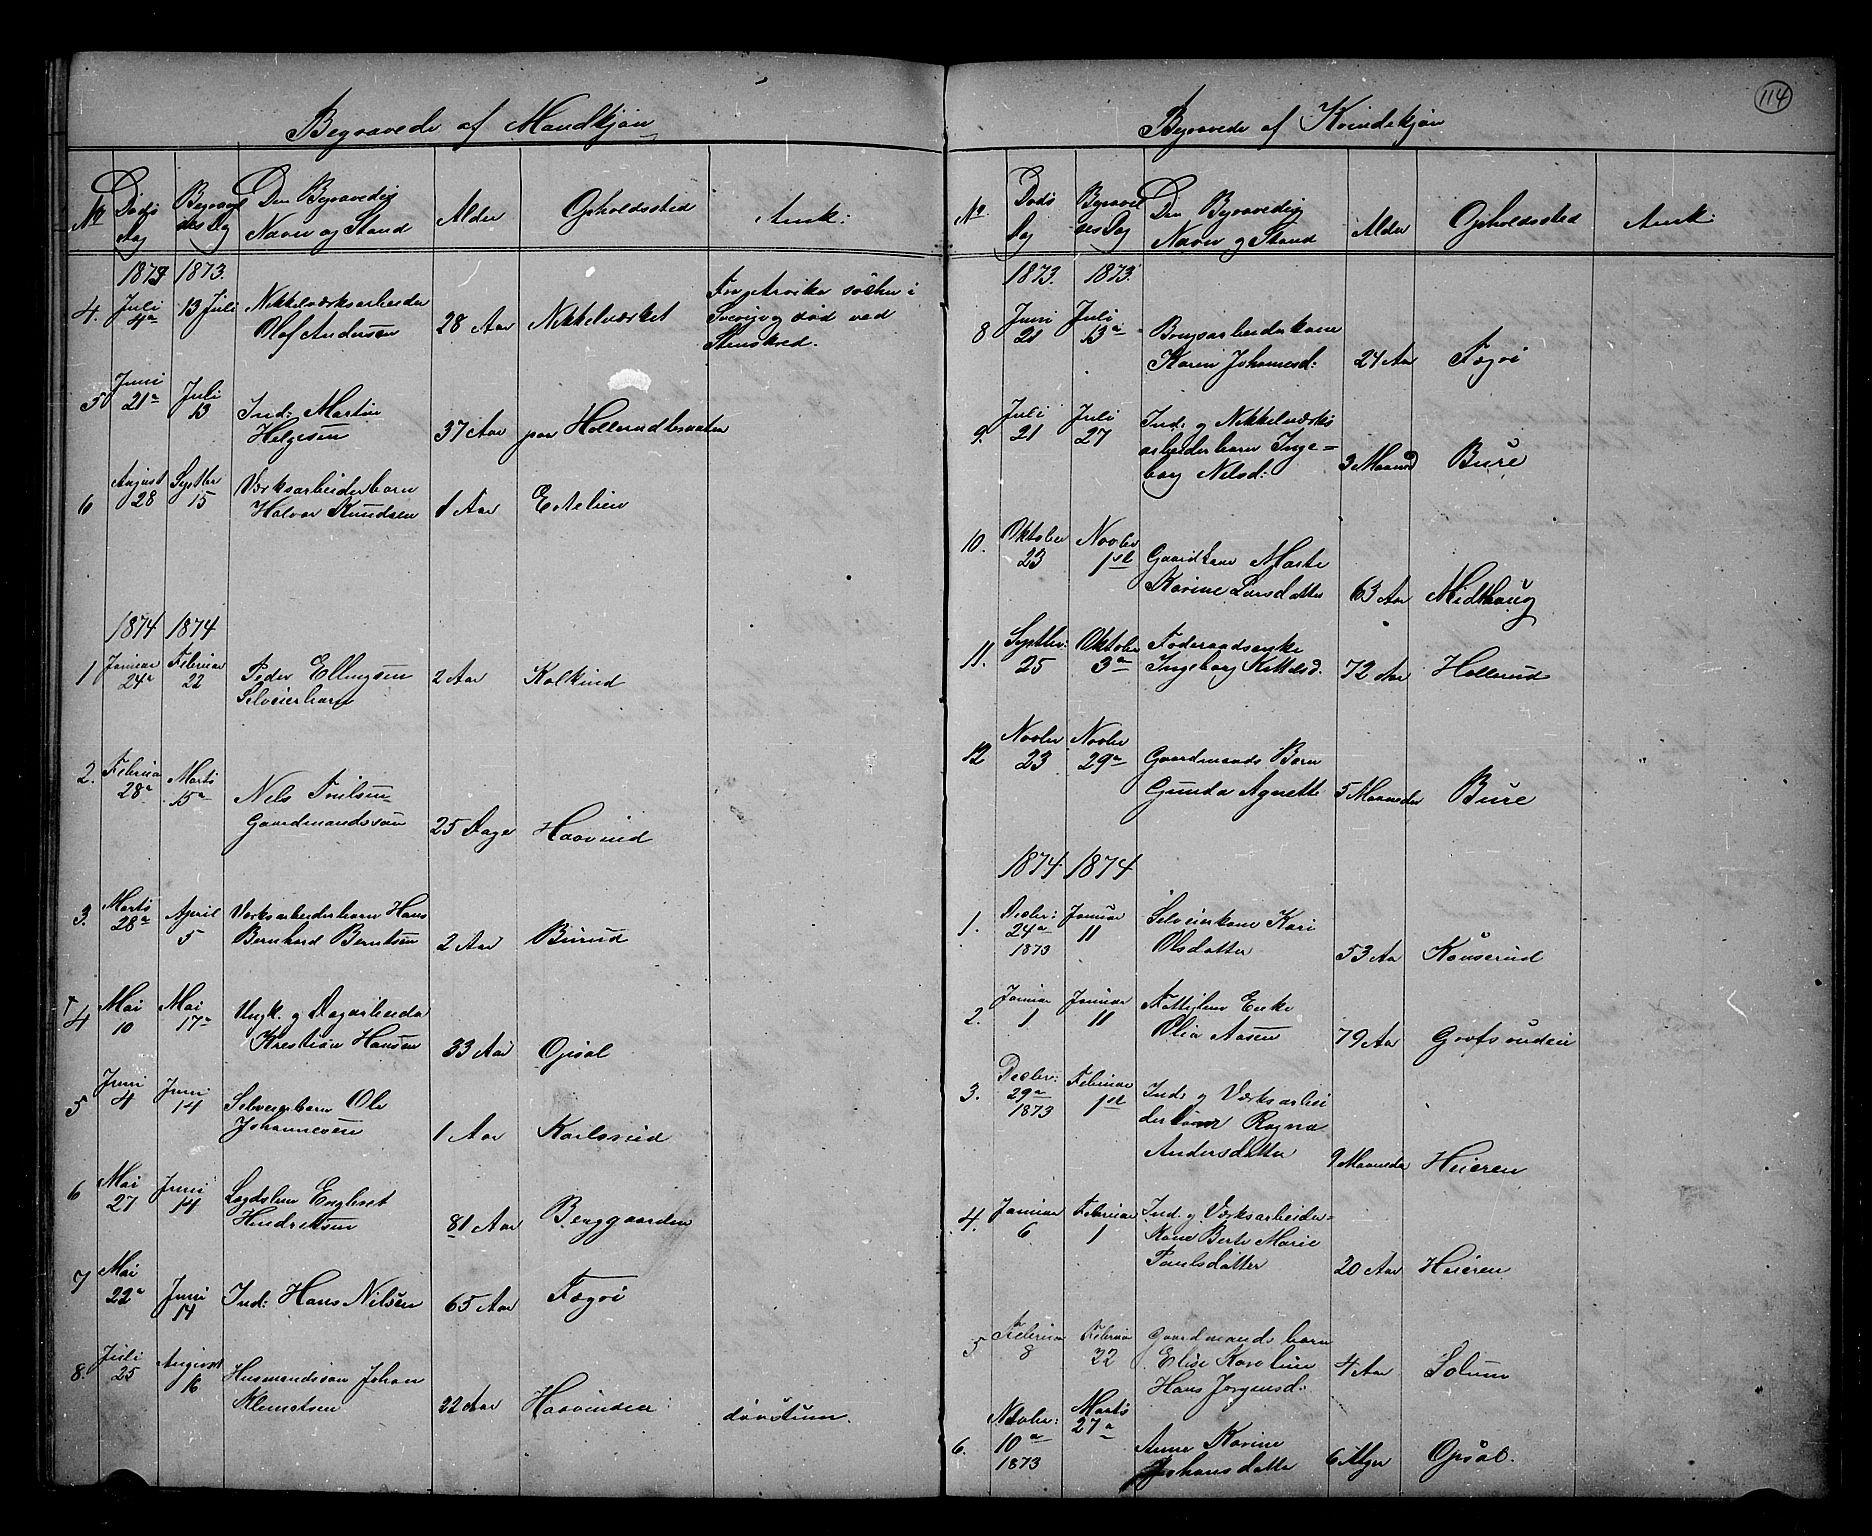 114
Begravede af Mandkjøn
No Døds Dag Begravelses Dag Den Begravedes Navn og Stand Alder Opholdssted Ank:
1873 1873.
4. Juli 4de 13 Juli Nikkelværksarbeider Olaf Anderssen 28 Aar Nikkelværket Fra Arvika sokn i
Sverige død ved
Stenskred.
5 Juni 21de Juli 13 Ind: Martin
Helgesen 37 Aar paa Hollerudbraaten
6 August 28 Septbr 15 Værksarbeiderbarn
Halvor Knudsen 1 Aar Eitelien
1874 1874
1 Januar 24de Februar 22 Peder Ellingsen 2 Aar Kolkind
Selveierbarn
2. Februar 28de Marts 15de Nils
Gaardmandssøn 25 Dage Haavind
3. Marts 28de April 5 Værksarbeiderbarn Hans
Bernhard Berntsen 2 Aar Burud
4 Mai 10 Mai 17de Ungk. og Dagarbeider
Kristian Hansen 33 Aar Opsal
5 Juni 4 Juni 14 Selveierbarn Ole
Johannesen 1 Aar Karlsrud
6 Mai 27 Juni 14 Lægdslem Englebret
Hendriksen 81 Aar Berggaarden
7 Mai 22de Juni 14 Ind: Hans Nilsen 65 Aar Fægri
8. Juli 25 August 16 Husmandssøn Johan
Klemetsen 22 Aar Haavinden døvstum.
Begravede af Kvindekjøn
No Døds Dag Begravelses Dag Den Begravedes Navn og Stand Alder Opholdssted Ank:
1873. 1873.
8 Juni 21 Juli 13de Brugsarbeiderkone
Karen Johannesd: 24 Aar Fægri
9. Juli 21 Juli 27 Ind. og Nikkelværks
arbeiderbarn Inge=
borg Nilsd: 3 Maaned Bure
10. Oktober 23 Novbr 1st Gaardkone Marte
Karine Larsdatter 63 Aar Midthaug
11. Septbr: 25 Oktober 3de Føderaadsenke
Ingeborg Kittelsd. 72 Aar Hollerud
12 Novbr 23 Novbr 29de Gaardmands Barn
Gunda Agnette 5 Maaneder Bure
1874. 1874
1. Decbr: 24de 1873 Januar 11 Selveierkone Kari
Olsdatter 53 Aar Kønserud
2. Januar 1 Januar 11 Fattiglem Enke
Olia Aasen 79 Aar Grofsrudeie
3. Decbr: 29de 1873 Februar 1st Ind. og Værksarbei
derbarn Ragna
Andersdatter 9 Maaneder Heieren
4. Januar 6 Februar 1 Ind. og Værksarbeider=
kone Berte Marie
Paulsdatter 20 Aar Heieren
5 Februar 8 Februar 22 Gaardmands barn
Elise Karoline
Hans Jørgensd: 4 Aar Solum
6. Novbr: 10de 1873 Marts 27de Anne Karine
Johansdatter 6 Uger Opsal.